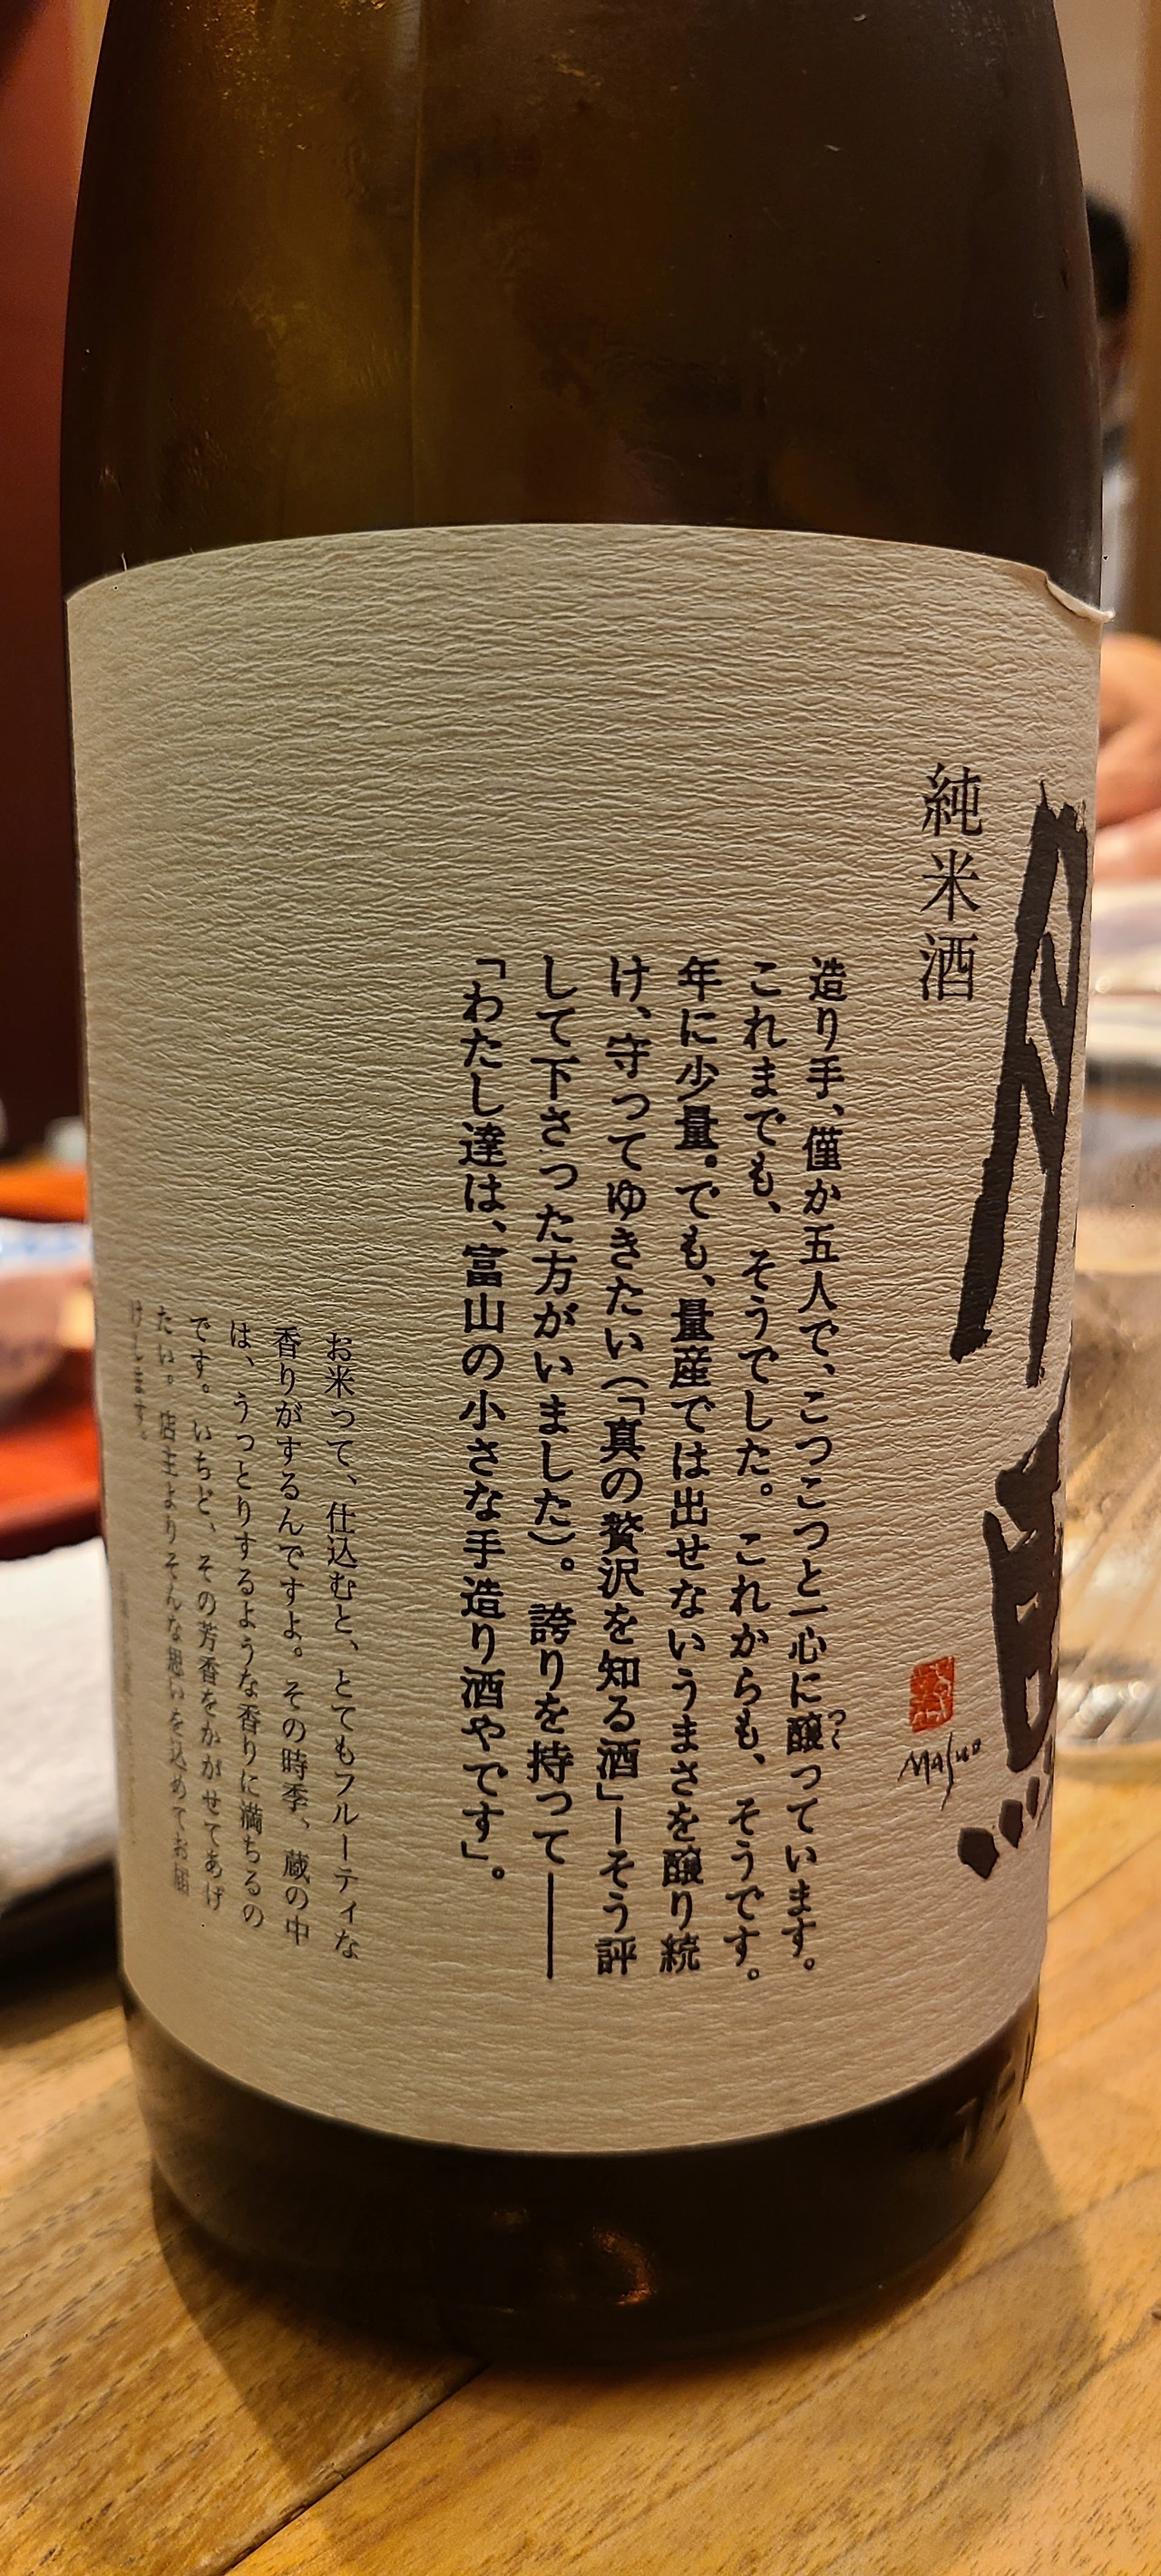 純米酒
MASUO
造り手、僅か五人で、こつこつと一心に醸っています。
つく
これまでも、そうでした。これからも、そうです。
年に少量。でも、量産では出せないうまさを醸り続
け、守ってゆきたい(「真の贅沢を知る酒」―そう評
して下さった方がいました)。誇りを持って――
「わたし達は、富山の小さな手造り酒やです」。
お米って、仕込むと、とてもフルーティな
香りがするんですよ。その時季、蔵の中
は、うっとりするような香りに満ちるの
です。いちど、その芳香をかがせてあげ
たい。店主よりそんな思いを込めてお届
けします。